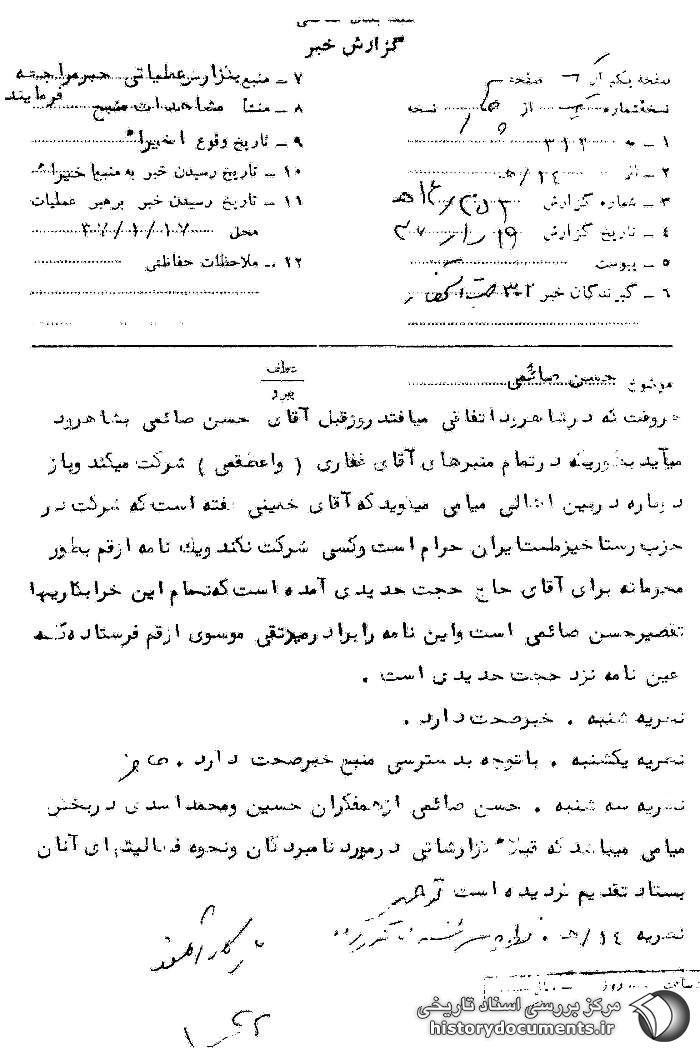 گزارش خبر
صفحه یکم از ٦ صفحه
نسخه شماره از چهار نسخه
١ ـ به ٣١٢
٢ ـ از ١٤/هـ
٣ ـ شماره گزارش
٤ ـ تاریخ گزارش ١٩
٥ ـ پیوست
٦ ـ گیرندگان خبر ٣٠٢
٧ ـ منبع بگزارش عملیاتی خبر مراجعه فرمایند
٨ ـ منشأ مشاهدات منبع
٩ ـ تاریخ وقوع اخیراً
١٠ ـ تاریخ رسیدن خبر به منبع اخیراً
١١ ـ تاریخ رسیدن خبر برهبر عملیات
محل ٣٧/١/١٧
١٢ ـ ملاحظات حفاظتی
موضوع حسن صائمی
عطف
پیرو
هروقت که در شاهرود اتفاقی میافتد روزقبل آقای حسن صائمی بشاهرود
میآید بطوریکه در تمام منبرهای آقای غفاری ( واعظ قمی ) شرکت میکند وباز
دوباره دربین اهالی میامی میگوید که آقای خمینی گفته است که شرکت در
حزب رستاخیز ملت ایران حرام است وکسی شرکت نکند ویك نامه ازقم بطور
محرمانه برای آقای حاج حجت حدیدی آمده است که تمام این خرابکاریها
تقصیر حسن صائمی است واین نامه را برادر میرتقی موسوی ازقم فرستاده که
عین نامه نزد حجت حدیدی است .
نظریه شنبه . خبرصحت دارد .
نظریه یکشنبه . باتوجه بدسترسی منبع خبرصحت دارد .
نظریه سه شنبه . حسن صائمی ازهمفکران حسین ومحمد اسدی دربخش
میامی میباشد که قبلاً گزارشاتی درمورد نامبردگان ونحوه فعالیتهای آنان
بستاد تقدیم گردیده است
نظریه ١٤/هـ .
مرکز بررسی اسناد تاریخی
historydocuments.ir